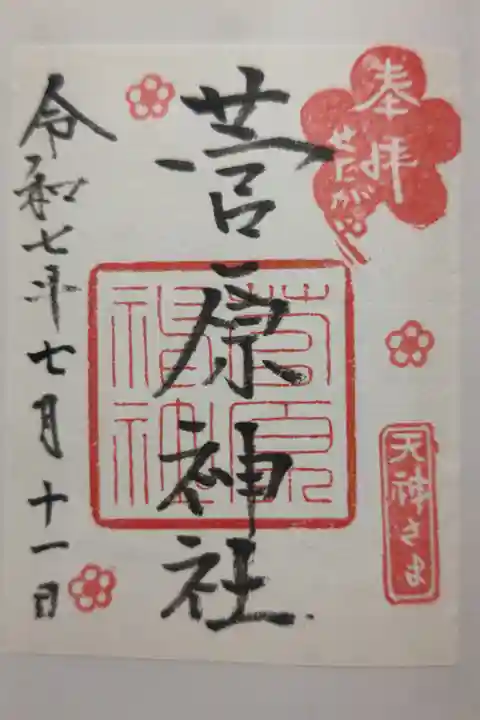 奉拝
せたがや
天神さま
菅原神社
令和七年七月十一日